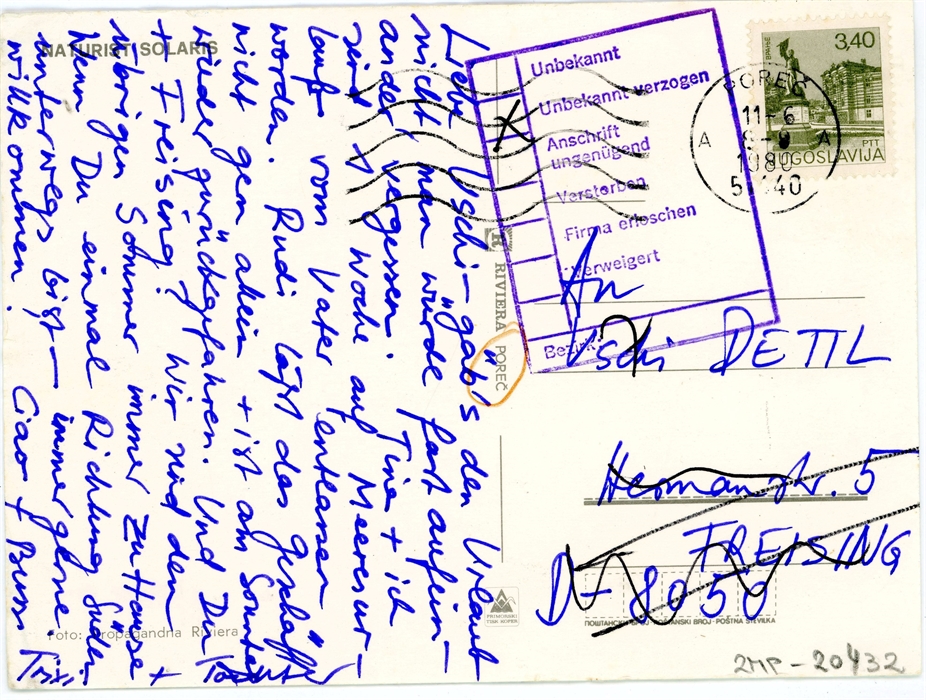 NATURIST SOLARIS
Liebe Uschi – gäb's den Urlaub
nicht, man würde fast aufein-
ander vergessen. Tine + ich
sind 1 Woche auf Meeresur-
laub vom Vater entlassen
worden. Rudi läßt das Geschäft
nicht gern allein + ist am Sonntag
wieder zurückgefahren. Und Du
+ Freising? Wir sind den
übrigen Sommer immer zu Hause +
wenn Du einmal Richtung Süden
unterwegs bist – immer gerne
willkommen! Ciao + Bussi
Foto: Propagandna Riviera
R RIVIERA POREČ
Unbekannt
Unbekannt verzogen
Anschrift
ungenügend
Verstorben
Firma erloschen
Verweigert
Bezirk:
POREČ
11-6
1980
A A
51440
3,40
PTT
JUGOSLAVIJA
An
Uschi DETTL
Hermanstr. 5
FREISING
D-8050
PRIMORSKI
TISK KOPER
ПОШТАНСКИ БРОЈ - POŠTANSKI BROJ - POŠTNA ŠTEVILKA
2MP-20432